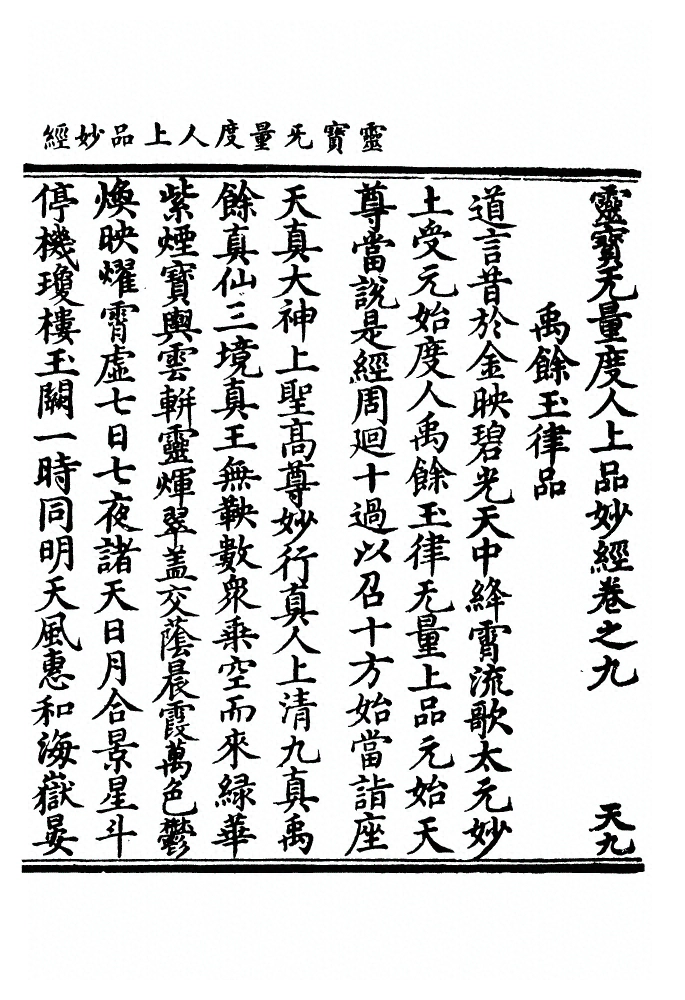 靈寶无量度人上品妙經
靈寶无量度人上品妙經卷之九 天九
禹餘玉律品
道言昔於金映碧光天中絳霄流歌太元妙
土受元始度人禹餘玉律无量上品元始天
尊當說是經周迴十過以召十方始當詣座
天真大神上聖高尊妙行真人上清九真禹
餘真仙三境真王無鞅數衆乘空而來緑華
紫煙寶輿雲輧靈煇翠蓋交蔭晨霞萬色欝
煥映耀霄虛七日七夜諸天日月合景星斗
停機瓊樓玉闕一時同明天風惠和海嶽晏